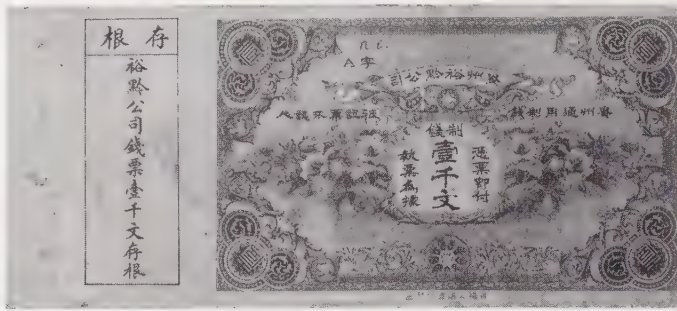 存根
裕黔公司錢票壹千文存根
A字
貴州裕黔公司
貴州通用制錢
認票不認人
制錢
憑票即付
壹千文
執票為據